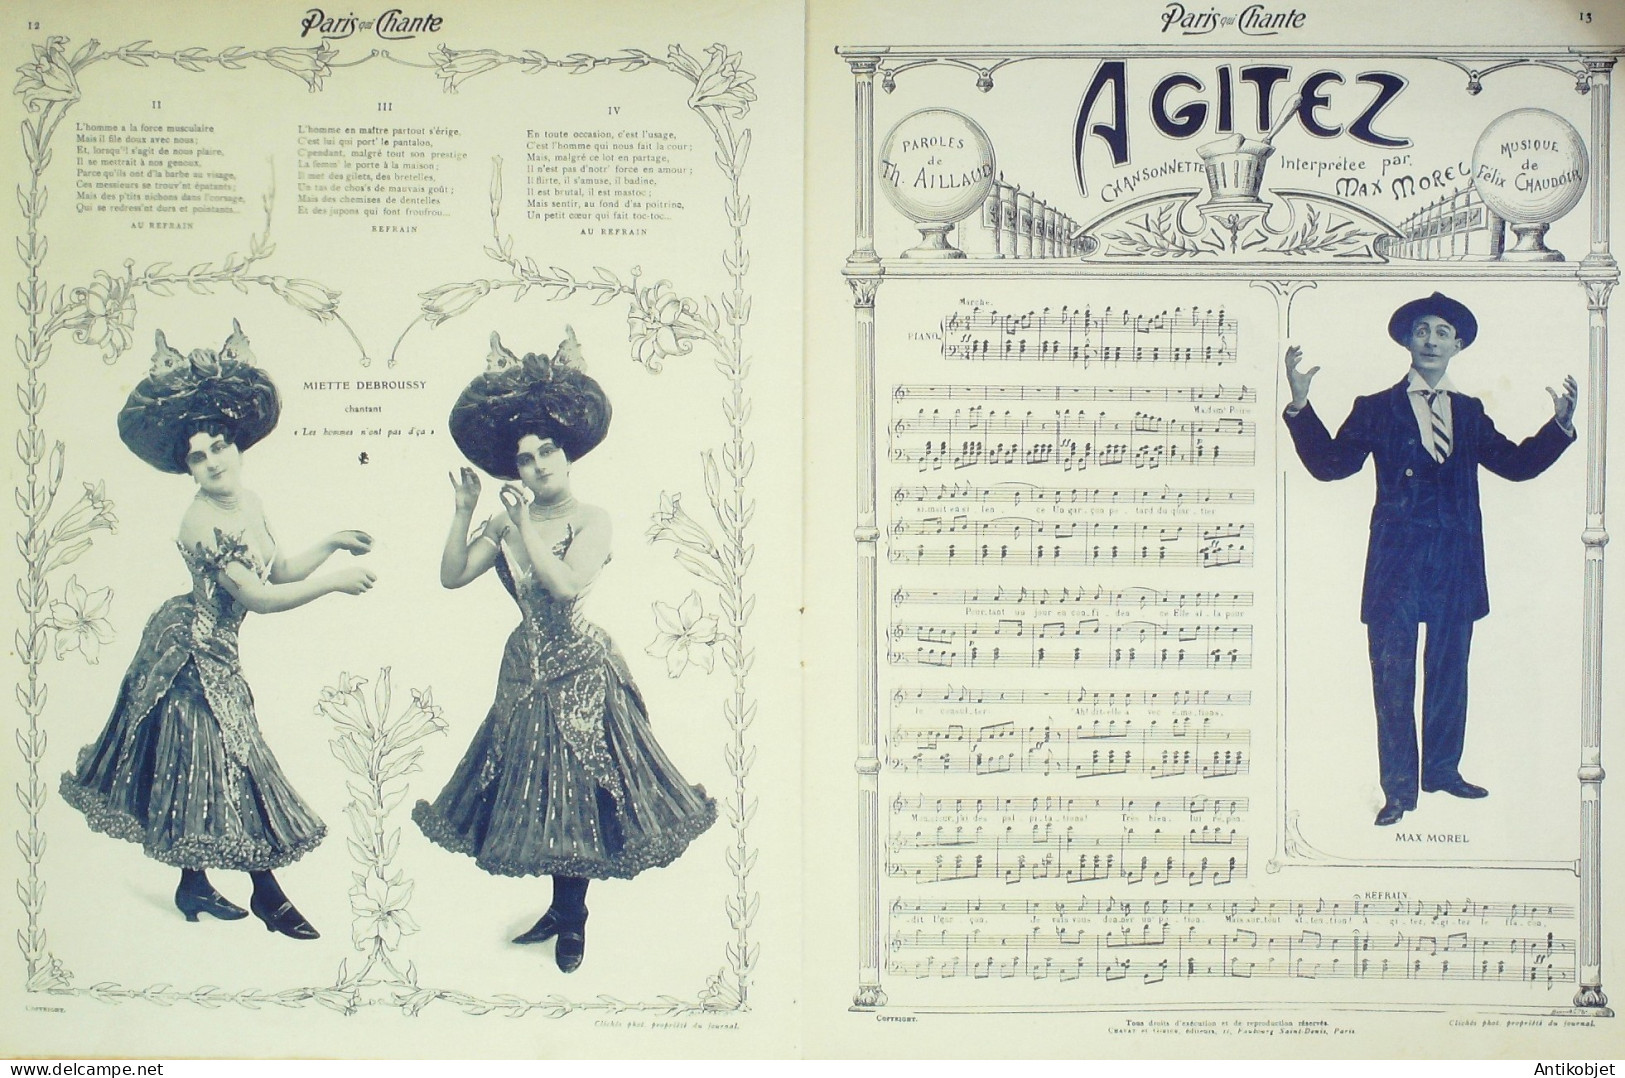 12
Paris qui Chante
II
L'homme a la force musculaire
Mais il file doux avec nous ;
Et, lorsqu'il s'agit de nous plaire,
Il se mettrait à nos genoux,
Parce qu'ils ont d'la barbe au visage,
Ces messieurs se trouv'nt épatants ;
Mais des p'tits nichons dans l'corsage,
Qui se redress'nt durs et pointants...
AU REFRAIN
III
L'homme en maître partout s'érige,
C'est lui qui port' le pantalon,
C'pendant, malgré tout son prestige
La femm' le porte à la maison ;
Il met des gilets, des bretelles,
Un tas de chos's de mauvais goût ;
Mais des chemises de dentelles
Et des jupons qui font froufrou...
REFRAIN
IV
En toute occasion, c'est l'usage,
C'est l'homme qui nous fait la cour ;
Mais, malgré ce lot en partage,
Il n'est pas d'notr' force en amour ;
Il flirte, il s'amuse, il badine,
Il est brutal, il est mastoc ;
Mais sentir, au fond d'sa poitrine,
Un petit cœur qui fait toc-toc...
AU REFRAIN
MIETTE DEBROUSSY
chantant
« Les hommes n'ont pas d'ça »
COPYRIGHT.
Clichés phot. propriété du journal.
Paris qui Chante
13
AGITEZ
PAROLES
de
Th. AILLAUD
CHANSONNETTE
Interprétée par
MAX MOREL
MUSIQUE
de
Félix CHAUDOIR
Marche.
PIANO.
ff
Madam' Poire
ai.mait en si len. ce Un gar.çon po. tard du quar. tier
Pour.tant un jour en con.fi. den. ce Elle al.la pour
le consul.ter. "Ah! dit-elle a vec é.mo.tions,
Mon.sieur, j'ai des pal. pi.ta.tions! Très bien, lui ré.pon.
.dit l'gar. çon, Je vais vous don.ner un' po. tion. Mais sur.tout at.ten.tion! A. gi.tez, a.gi.tez le fla.con,
REFRAIN
MAX MOREL
COPYRIGHT.
Tous droits d'exécution et de reproduction réservés.
Clichés phot. propriété du journal.
éditeurs, 11, Faubourg Saint-Denis, Paris
Antikobjet - delcampe.net